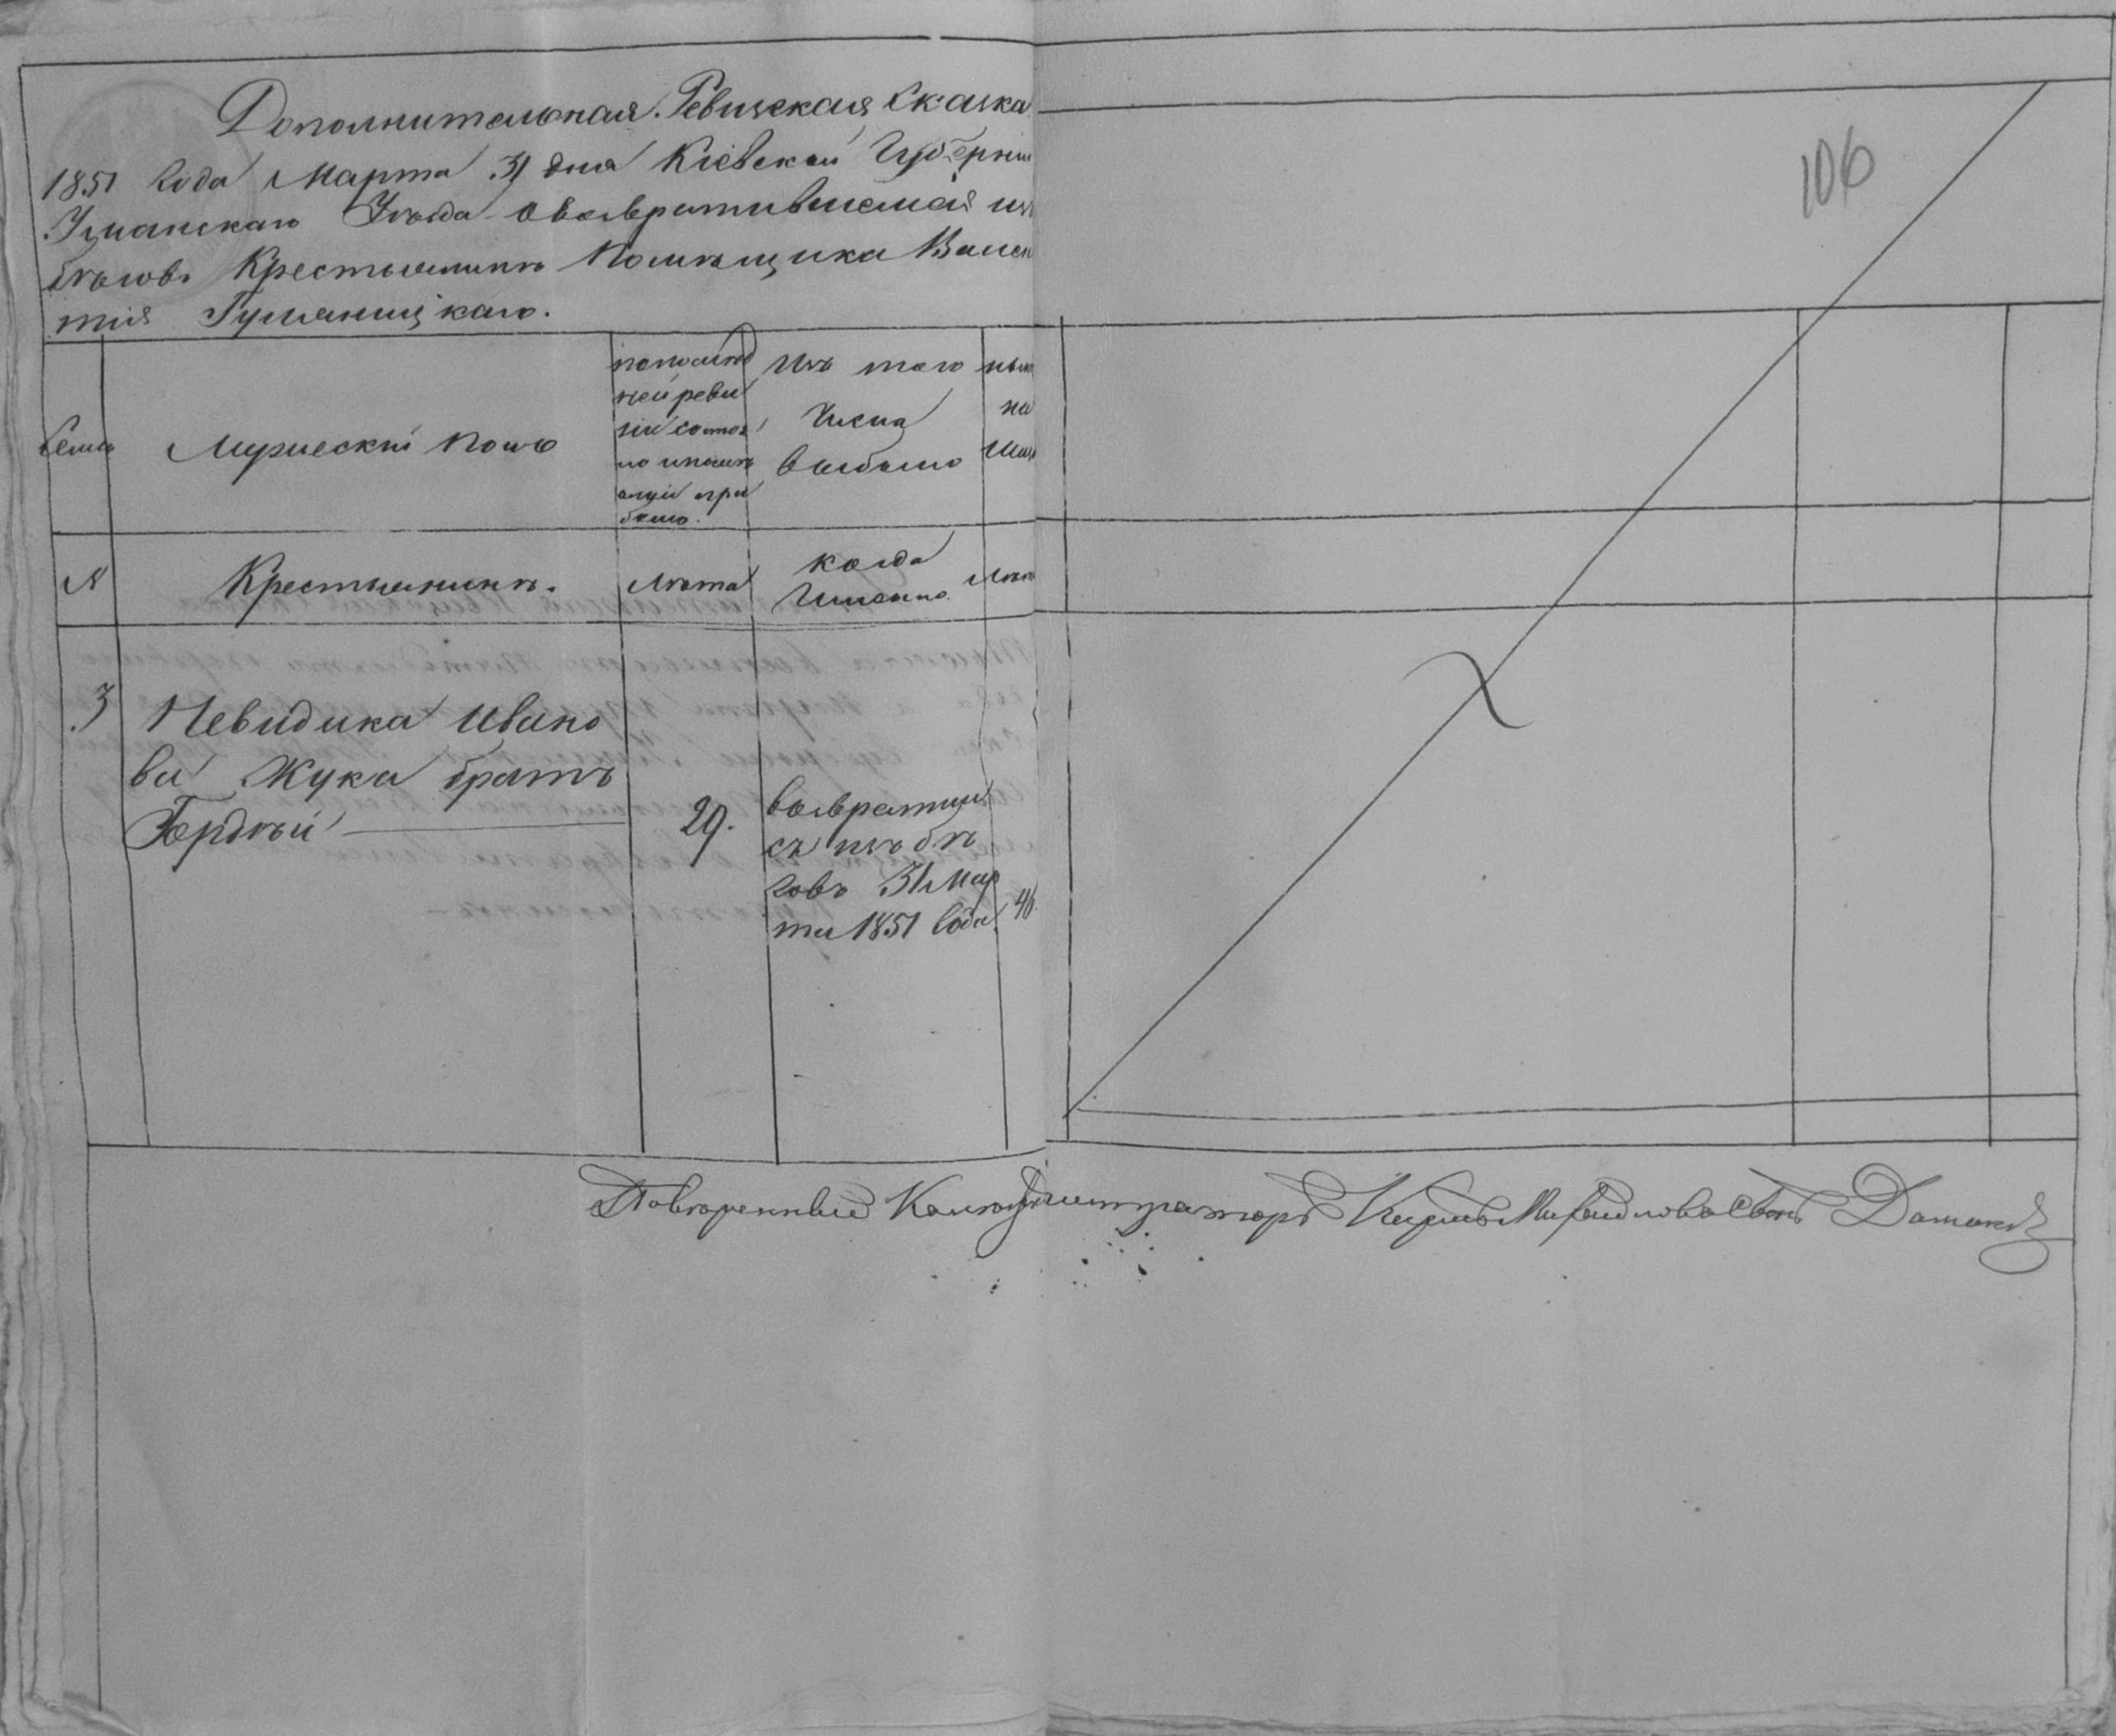 Дополнительная Ревизская Сказка
1851 Года Марта 31 дня Кіевской Губерніи
Уманскаго Уѣзда о возвратившемся изъ
бѣговъ Крестьянинѣ Помѣщика Вален
тія Гуманицкаго.
106
Семьи
Мужескій полъ
по послѣд
ней реви
зіи состоя
ло и послѣ
оной при
было.
Изъ того
Числа
выбыло
нынѣ
на
лицо
№
Крестьянинъ.
Лѣта
когда
Именно
Лѣта
3
Невидика Ивано
ва Жука братъ
Гордѣй
29.
возвратил
ся изъ бѣ
говъ 31 Мар
та 1851 Года
46
Повѣренный Михайловъ сынъ